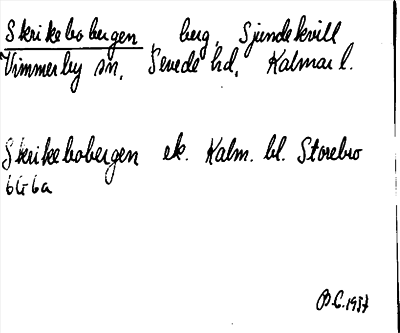 Skrikebobergen, berg, Sjundekvill
Vimmerby sn, Sevede hd, Kalmar l.
Skrikebobergen ek. Kalm. bl. Storebro
6G 6a
B.C. 1957